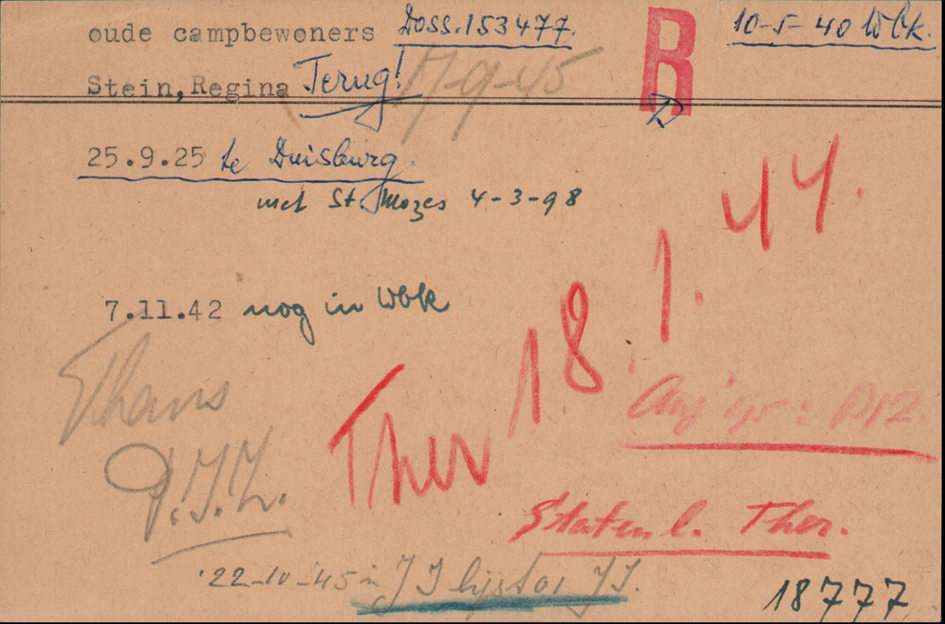 oude campbewoners Doss.153477. R 10-5-40 Wbk.
Stein,Regina Terug! 17-9-45
25.9.25 te Duisburg.
met St. Mozes 4-3-98
18.1.44.
7.11.42 nog in Wbk
Thans Ther
P.I.Z.
Statenl. Ther.
22-10-45 in JI lijst
18777